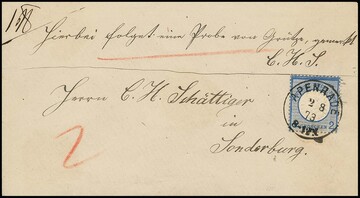 Hierbei folget eine Probe von Grütze, gemerkt
C. H. S.
APENRADE
2 8
73
8-12 V.
2
Herrn C. H. Schättiger
in
Sonderburg.
2